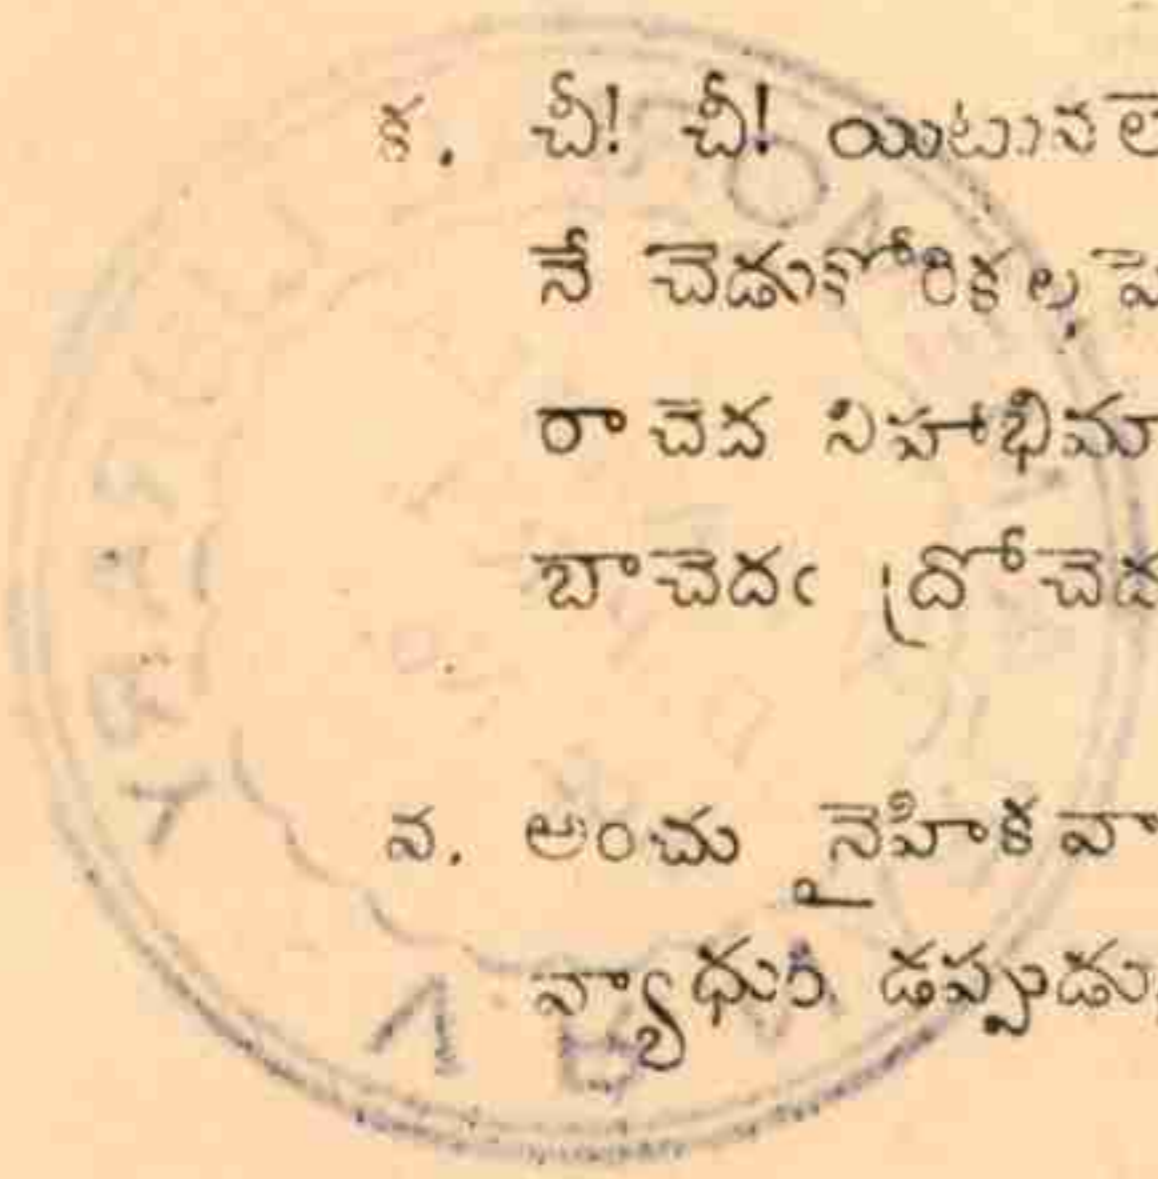 క. చీ! చీ! యిటున
నే చెడుకోరికల
రా చెద నిహాభిమా
బాచెదఁ ద్రోచెద
వ. అంచు నైహిక వా
వ్యాధుఁ డప్పుడు